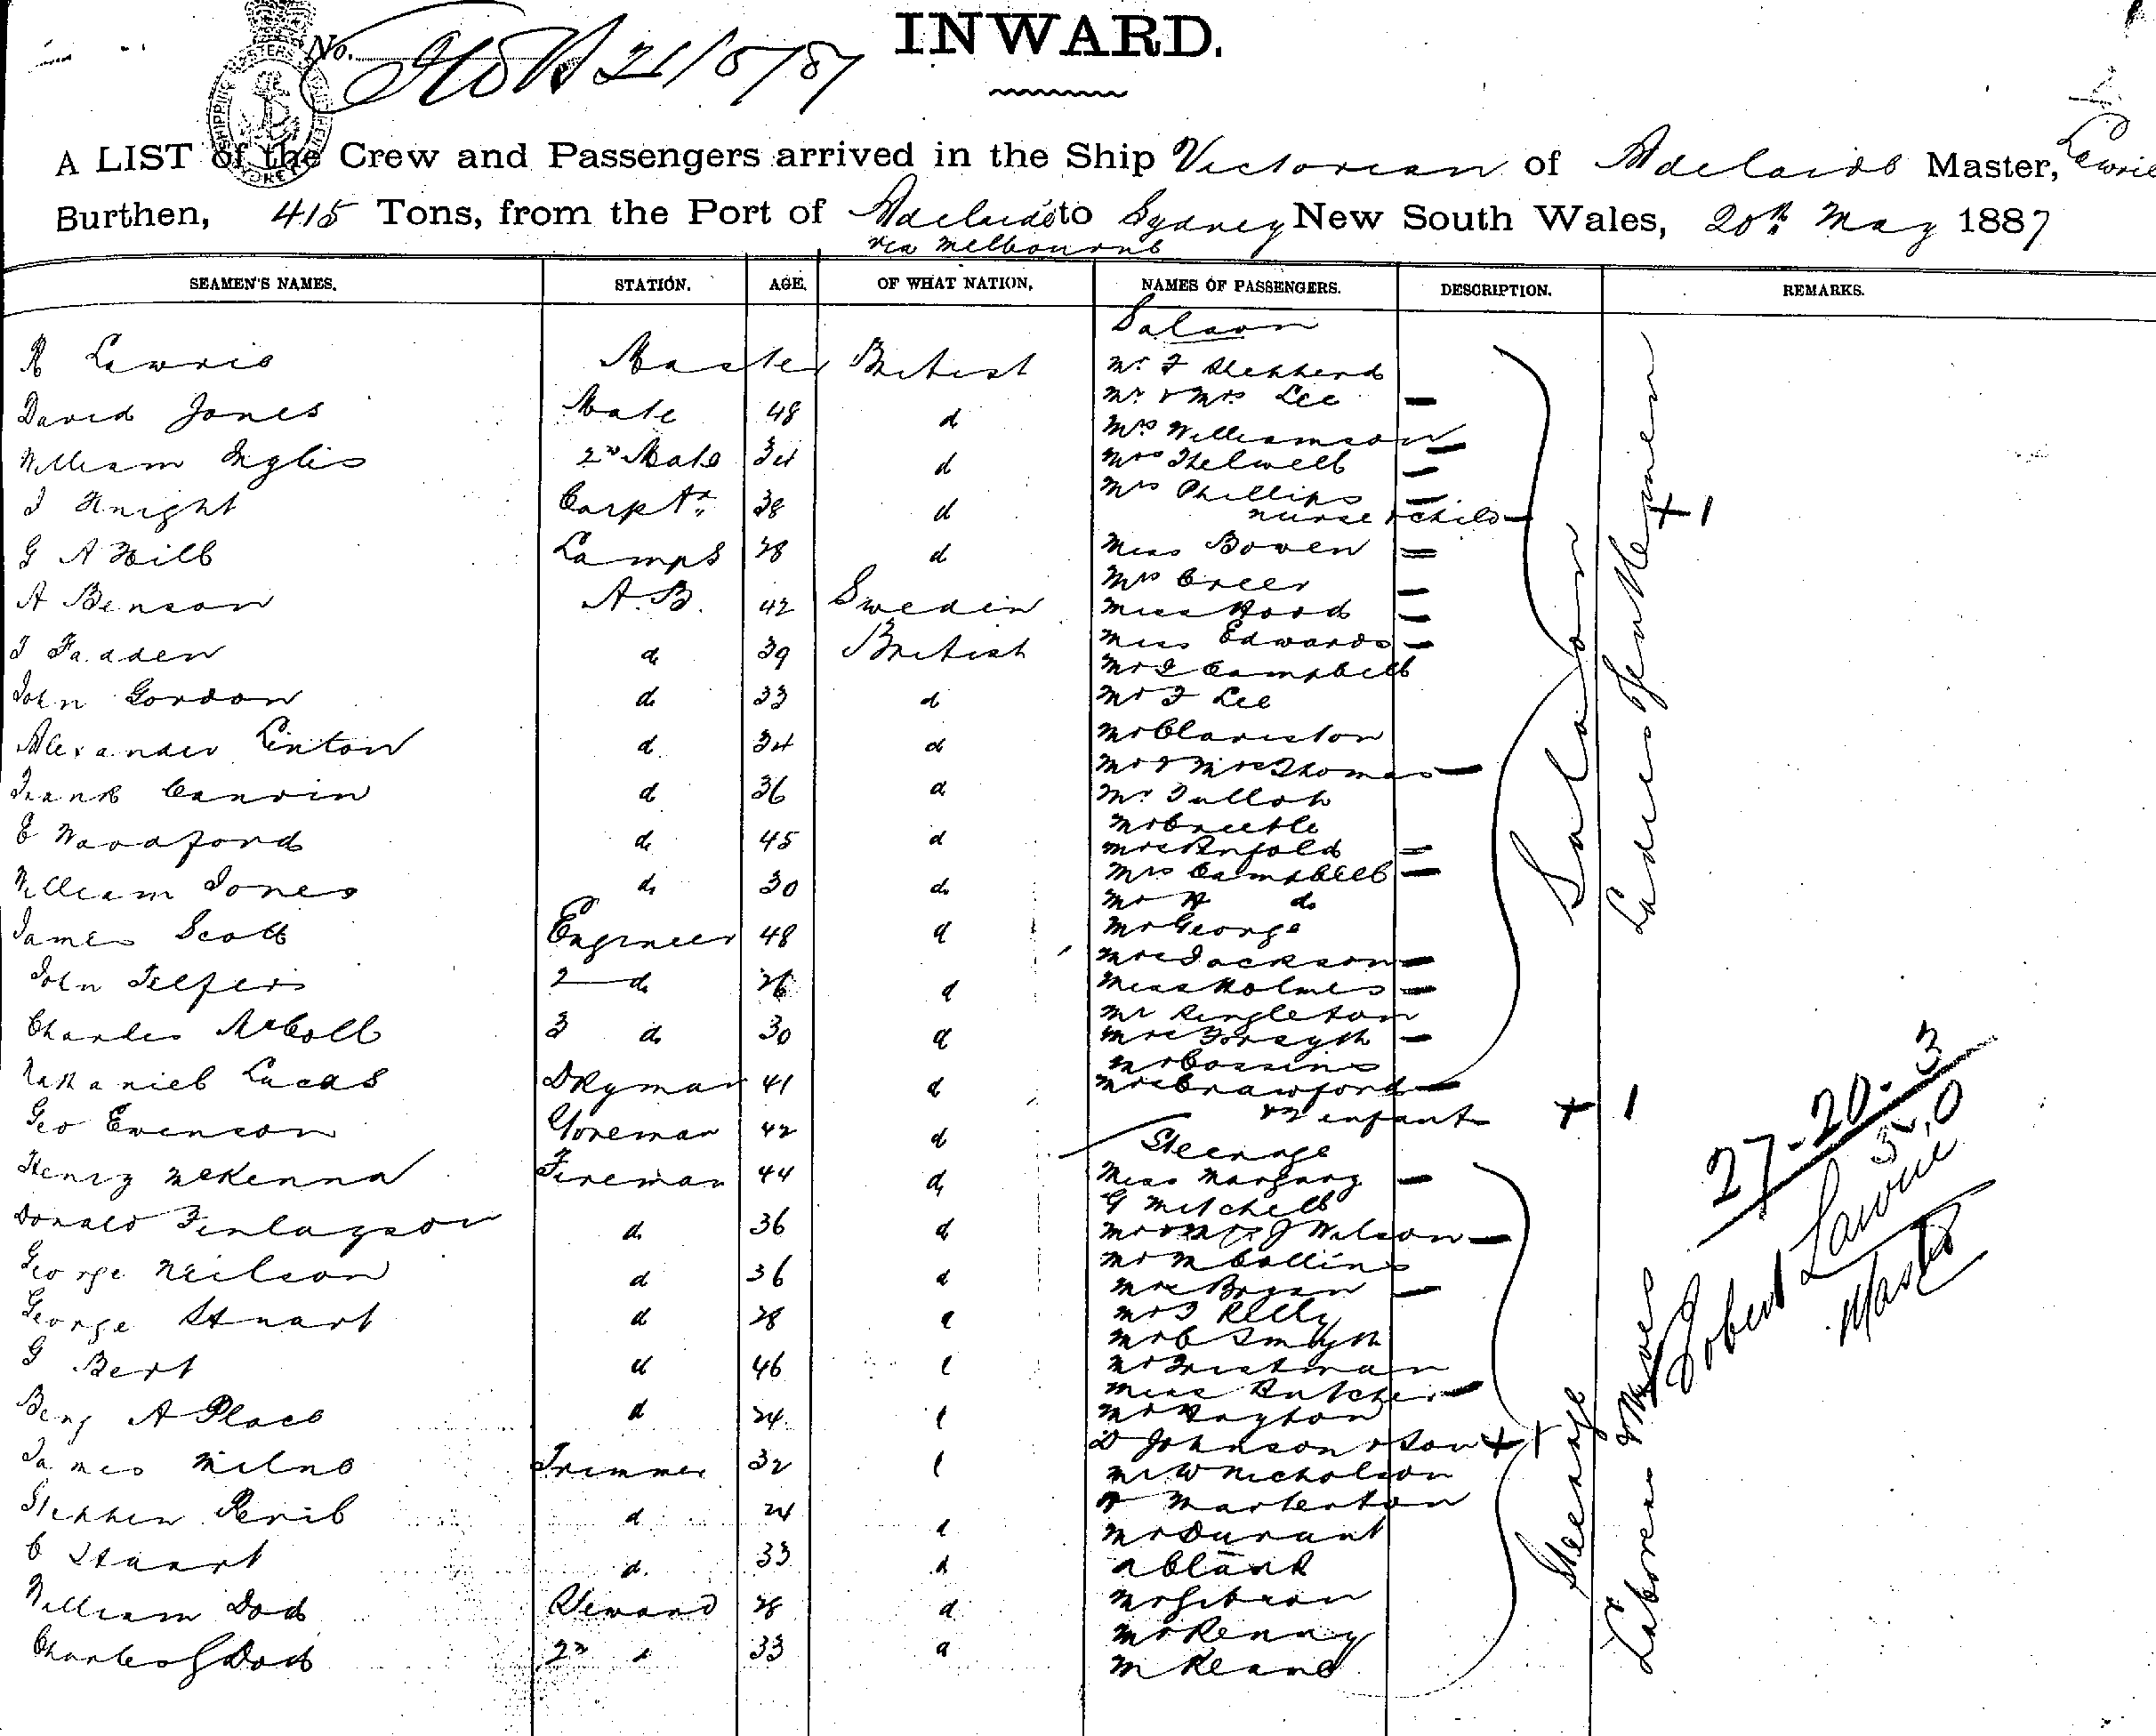 INWARD.
No. 21/5/87
A LIST of the Crew and Passengers arrived in the Ship Victorian of Adelaide Master, Lawrie
Burthen, 415 Tons, from the Port of Adelaide to Sydney New South Wales, 20th May 1887
via Melbourne
SEAMEN'S NAMES. STATION. AGE. OF WHAT NATION. NAMES OF PASSENGERS. DESCRIPTION. REMARKS.
R Lawrie Master British
David Jones Mate 48 d
William Inglis 2nd Mate 34 d
J Knight Carptr 38 d
G A Hill Lamps 28 d
A Benson A.B. 42 Sweden
J Fadden d 39 British
John Gordon d 33 d
Alexander Linton d 34 d
Frank d 36 d
E Woodford d 45 d
William Jones d 30 d
James Scott Engineer 48 d
John Telfer 2 d 26 d
Charles McColl 3 d 30 d
Nathaniel Lucas Dkyman 41 d
Geo Evenson Storeman 42 d
Henry McKenna Fireman 44 d
Donald Finlayson d 36 d
George Neilson d 36 d
George Stuart d 28
G Bert d 46
Benj A Place d 24
James Milne Trimmer 32
Stephen d 24 d
C Stuart d. 33 d
William Dod Steward 28 d
Charles G Dod 2nd d 33 d
Saloon
Mr F Shepherd
Mr & Mrs Lee
Mrs Williamson
Mrs Thelwell
Mrs Phillips
nurse & child
Miss Bowen
Mrs Creer
Miss Hood
Miss Edwards
Mr J Campbell
Mr F Lee
Mr
Mr & Mrs Thomas
Mr Tulloh
Mr
Mrs Penfold
Mrs Campbell
Mr H do
Mr George
Mrs Jackson
Miss Holmes
Mr Singleton
Mrs Forsyth
Mr Cossins
Mrs Crawford
& 2 infants
Steerage
Miss
G Mitchell
Mr & Mrs J Wilson
Mr M Collins
Mrs Bryan
Mr J Kelly
Mr C Smyth
Mr
Miss Butcher
Mr
D Johnson & Son
Mr W Nicholson
Mr Durant
Mr Gibson
Mr Kenny
M Keane
Saloon
Ladies & Gentlemen
+ 1
+ 1
+ 1
Steerage
Laborers & Wives
27-20-3
Robert Lawrie
Master